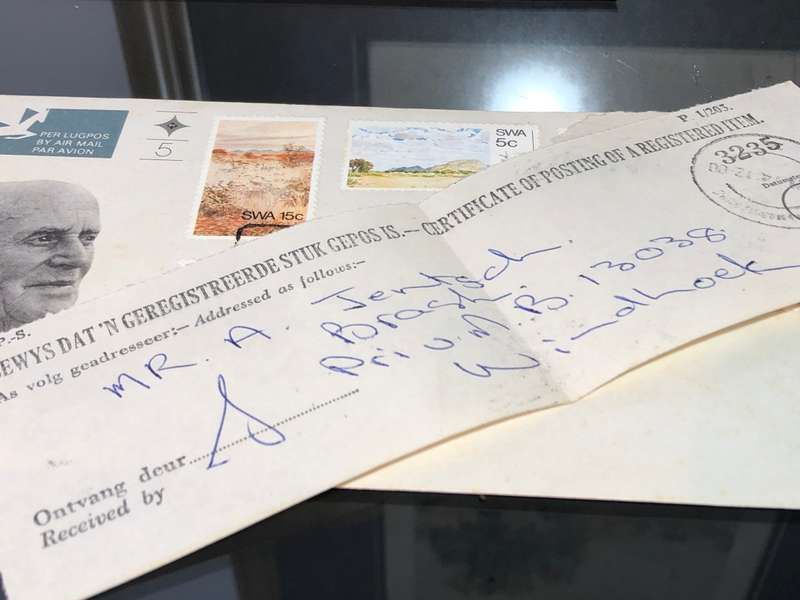 PER LUGPOS
BY AIR MAIL
PAR AVION
5
SWA 15c
SWA
5c
P.-S.
P 1/203.
3235
EWYS DAT 'N GEREGISTREERDE STUK GEPOS IS.—CERTIFICATE OF POSTING OF A REGISTERED ITEM.
As volg geadresseer:- Addressed as follows:-
MR. A. Jentsch.
Priv. B. 13038
Windhoek
Ontvang deur
Received by